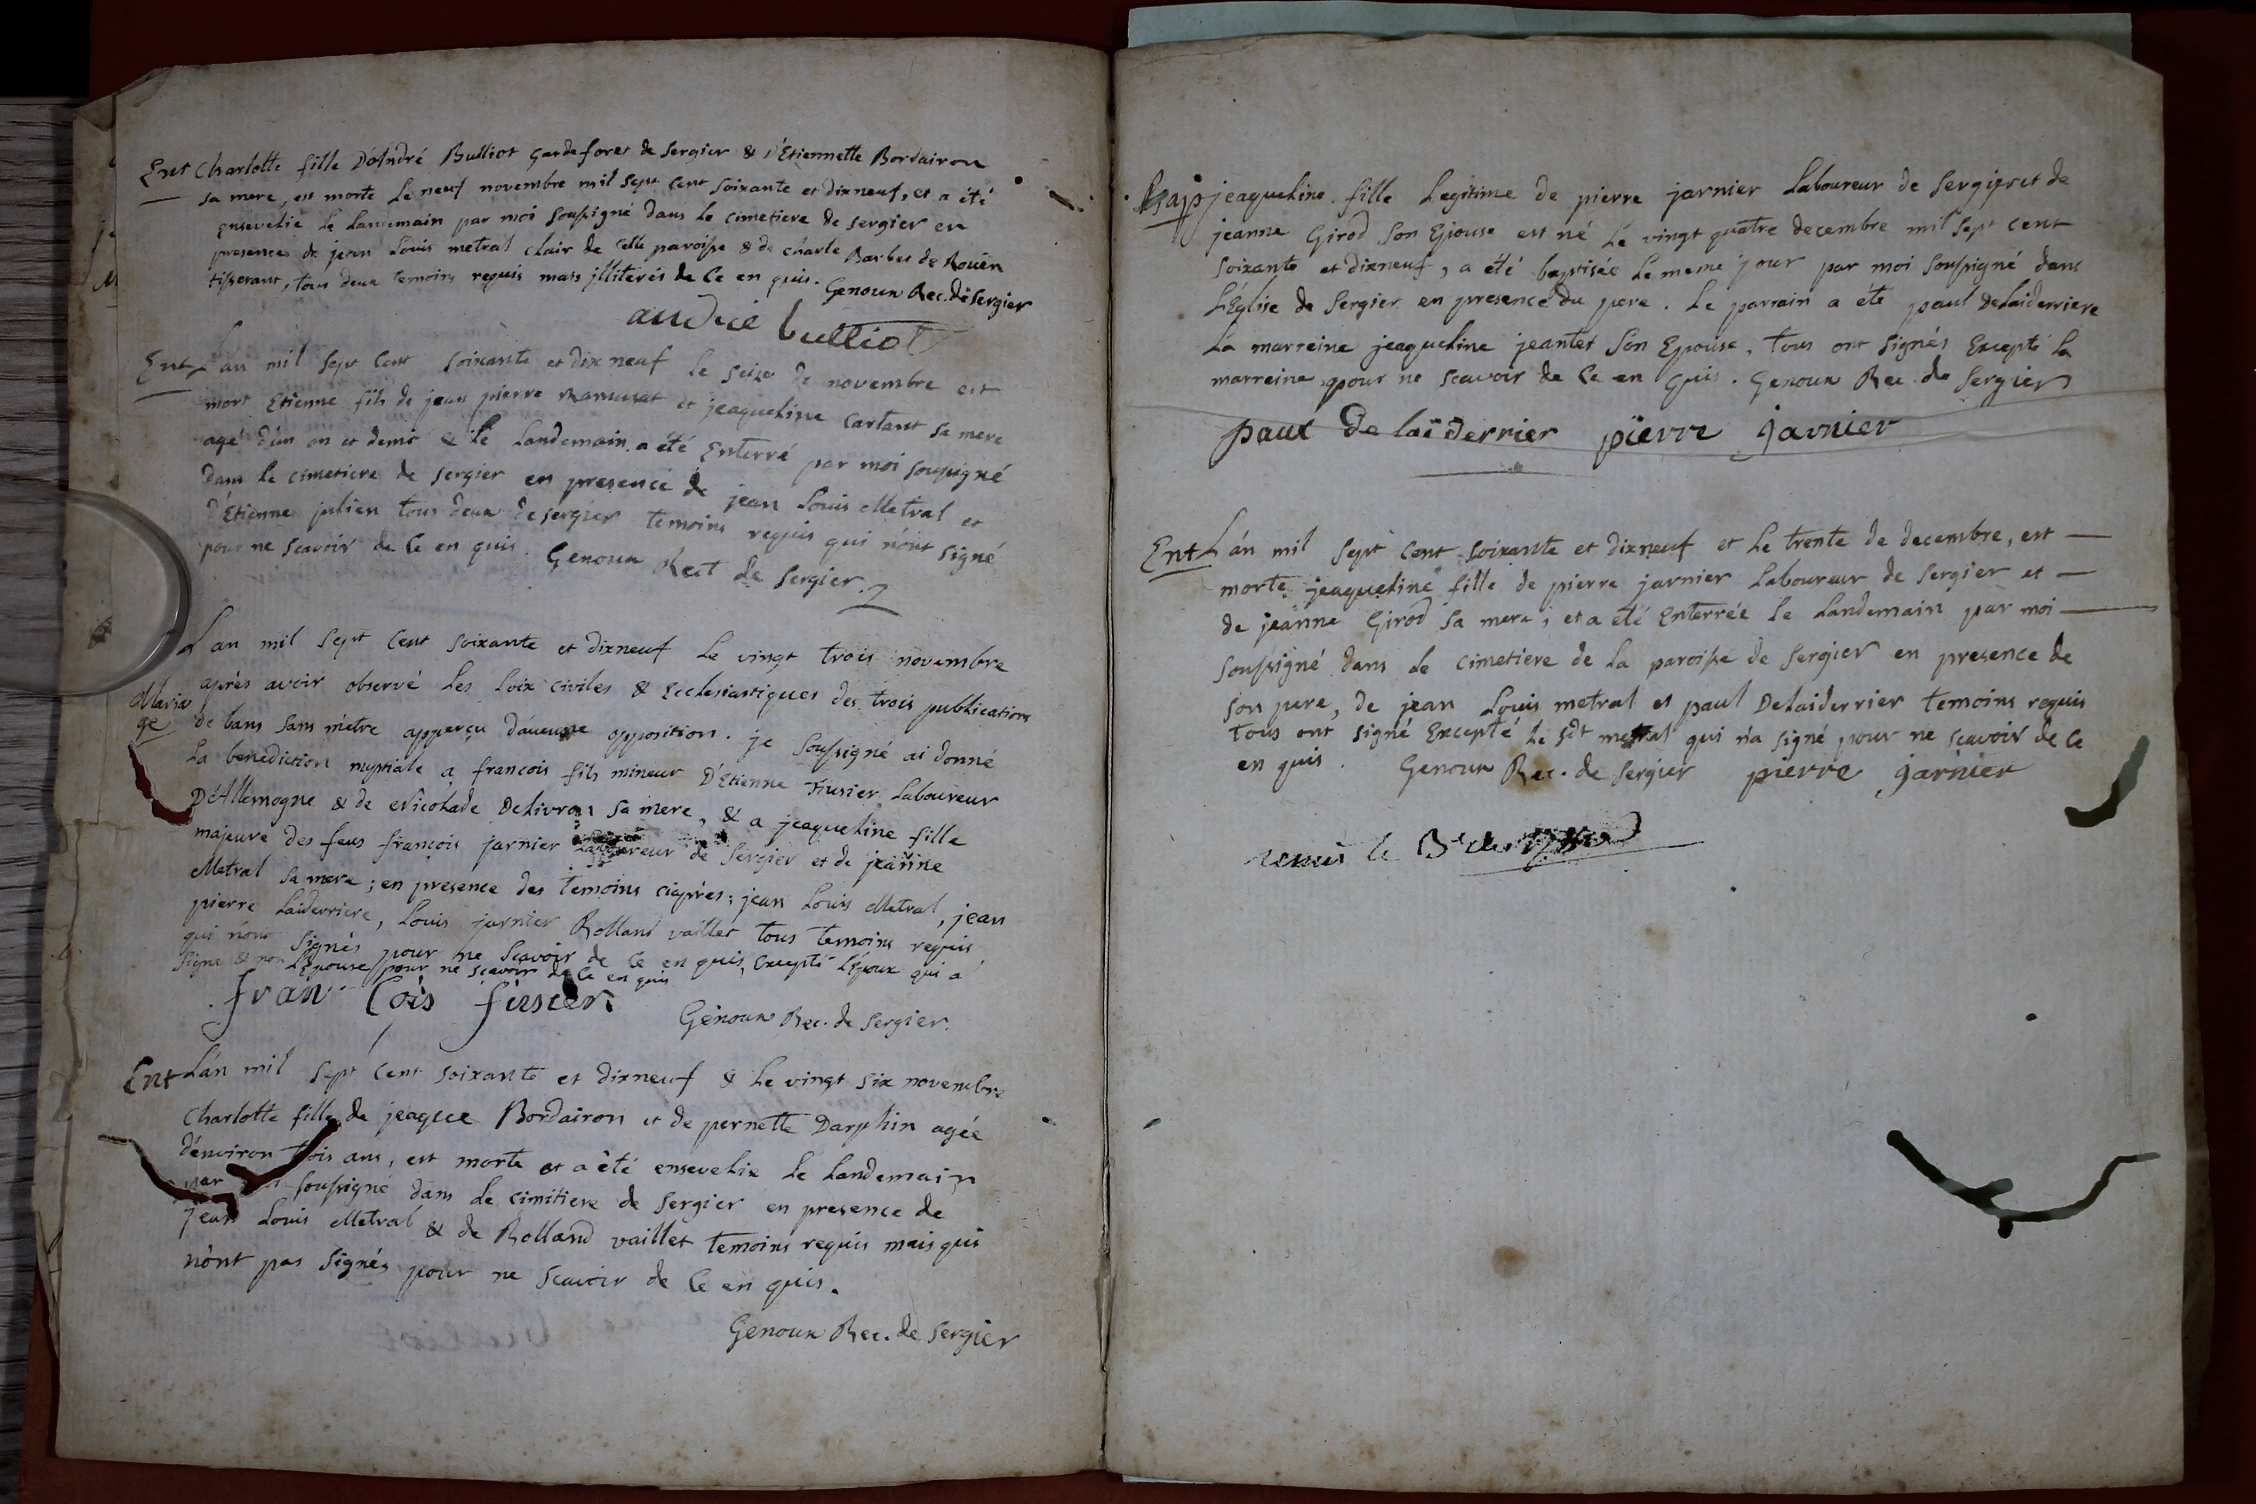 Ent Charlotte fille D'André Bulliot Gardeforet de Sergier & d'Etiennette Bordairon
sa mere, est morte le neuf novembre mil sept cent soixante et dixneuf, et a été
ensevelie le landemain par moi soussigné dans le cimetiere de sergier en
presences de jean Louis metral clair de cette paroisse & de charle Barbet de Rouën
tisserant, tous deux temoins requis mais illiterés de ce en quis. Genoux Rec. de Sergier
andrié bulliot
Ent L'an mil sept cent soixante et dix neuf le seize de novembre est
mort Etienne fils de jean pierre Ramusat et jeaqueline Cartant sa mere
agé d'un an et demie & le landemain a été Enterré par moi soussigné
dans le cimetiere de Sergier en presence de jean Louis Metral et
d'Etienne julien tous deux de sergier temoins requis qui n'ont signé
pour ne scavoir de ce en quis. Genoux Rect de Sergier.
L'an mil sept cent soixante et dixneuf le vingt trois novembre
après avoir observé les Loix civiles & Ecclesiastiques des trois publications
Maria
ge de bans sans m'etre apperçu d'aucune opposition. je soussigné ai donné
la benediction nuptiale a francois fils mineur D'Etienne Fusier laboureur
D'Allemogne & de Nicolade Delivron sa mere, & a jeaqueline fille
majeure des feus françois jarnier laboureur de Sergier et de jeanne
Metral sa mere; en presence des temoins ciaprès; jean Louis Metral, jean
pierre Laiderriere, Louis jarnier Rolland vaillet tous temoins requis
qui n'ont signés pour ne scavoir de ce en quis, Excepté l'Epoux qui a
signé & non l'Epouse pour ne scavoir de ce en quis
fran Cois fusier
Genoux Rec. de Sergier.
Ent L'an mil sept cent soixante et dixneuf & le vingt six novembre
Charlotte fille de jeaque Bordairon et de pernette Darphin agée
d'environ trois ans, est morte et a été ensevelie le landemain
par soussigné dans le cimitiere de Sergier en presence de
jean Louis Metral & de Rolland vaillet temoins requis mais qui
n'ont pas signés pour ne scavoir de ce en quis.
Genoux Rec. de Sergier
Bap jeaqueline fille legitime de pierre jarnier laboureur de Sergier et de
jeanne Girod son Epouse est né le vingt quatre decembre mil sept cent
soixante et dixneuf, a été baptisée le meme jour par moi soussigné dans
l'Église de Sergier en presence du pere. le parrain a été paul Delaiderriere
la marreine jeaqueline jeantet son Epouse, tous ont signés Excepté la
marreine pour ne scavoir de ce en quis. Genoux Rec. de Sergier
paul de laiderrier pierre jarnier
Ent L'an mil sept cent soixante et dixneuf et le trente de decembre, est
morte jeaqueline fille de pierre jarnier laboureur de Sergier et
de jeanne Girod sa mere, et a été enterrée le landemain par moi
soussigné dans le cimetiere de la paroisse de Sergier en presence de
son pere, de jean Louis metral et paul Delaiderrier temoins requis
tous ont signé Excepté le sdt metral qui n'a signé pour ne scavoir de ce
en quis. Genoux Rec. de Sergier pierre jarnier
remis le